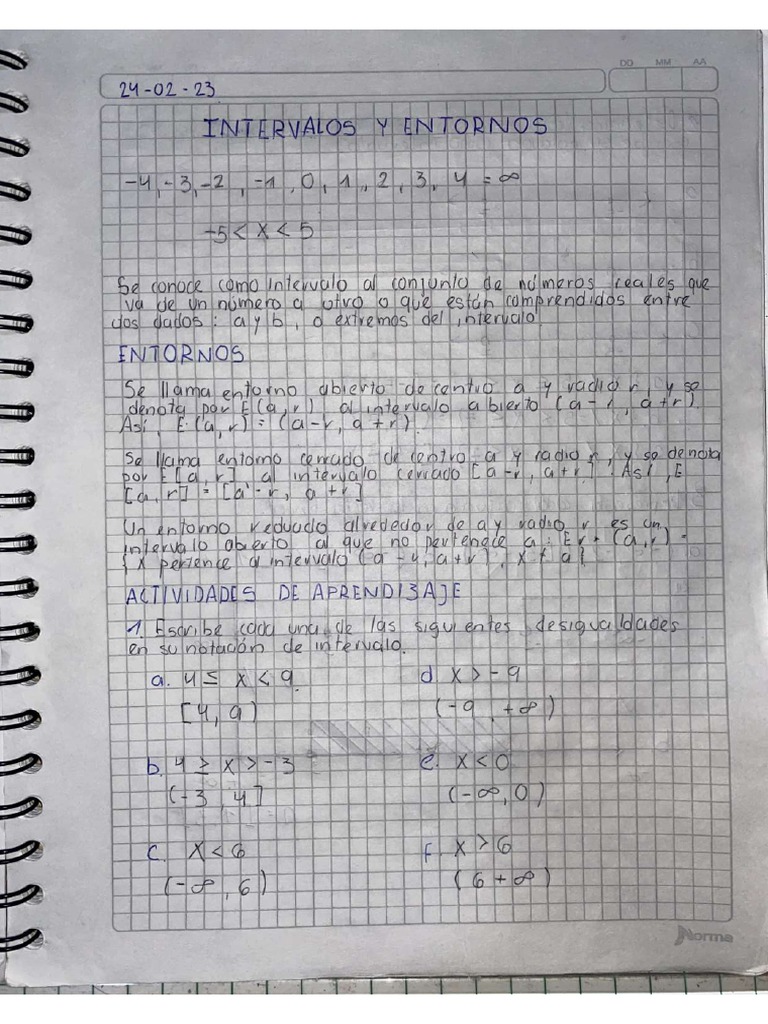 DD MM AA
24-02-23
INTERVALOS Y ENTORNOS
-4, -3, -2, -1, 0, 1, 2, 3, 4 = ∞
-5 < x < 5
Se conoce como intervalo al conjunto de números reales que
va de un número a otro o que están comprendidos entre
dos dados: a y b, o extremos del intervalo
ENTORNOS
Se llama entorno abierto de centro a y radio r, y se
denota por E(a,r) al intervalo abierto (a-r, a+r).
Así, E(a,r) = (a-r, a+r).
Se llama entorno cerrado de centro a y radio r, y se denota
por E[a,r] al intervalo cerrado [a-r, a+r]. Así, E
[a,r] = [a-r, a+r]
Un entorno reducido alrededor de a y radio r es un
intervalo abierto al que no pertenece a: Er*(a,r) =
{x pertence al intervalo (a-r, a+r), x ≠ a}
ACTIVIDADES DE APRENDIZAJE
1. Escribe cada una de las siguientes desigualdades
en su notación de intervalo.
a. 4 ≤ x < 9
[4, 9)
b. 4 ≥ x > -3
(-3, 4]
c. x < 6
(-∞, 6)
d x > -9
(-9, +∞)
e. x < 0
(-∞, 0)
f. x > 6
(6 +∞)
Norma